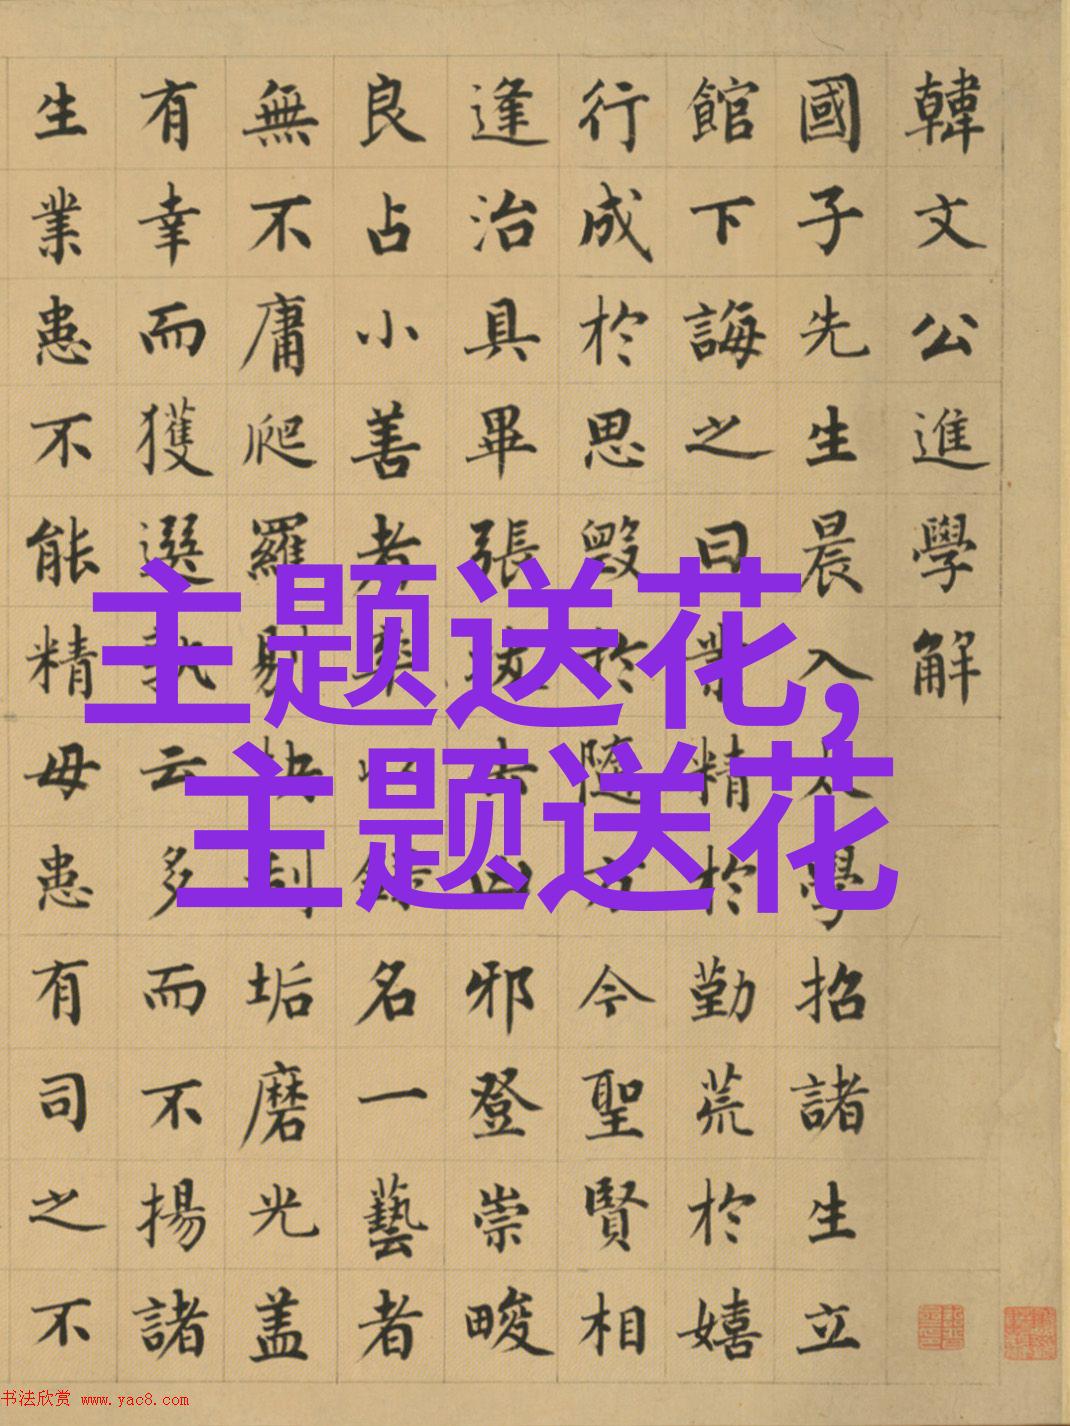 韓文公進學解
國子先生晨入太學招諸生立
館下誨之曰業精於勤荒於嬉
行成於思毀於隨方今聖賢相
逢治具畢張拔去凶邪登崇畯
良占小善者率以錄名一藝者
無不庸爬羅剔抉刮垢磨光盖
有幸而獲選孰云多而不揚諸
生業患不能精毋患有司之不
主题送花，
主题送花
书法欣赏 www.yac8.com